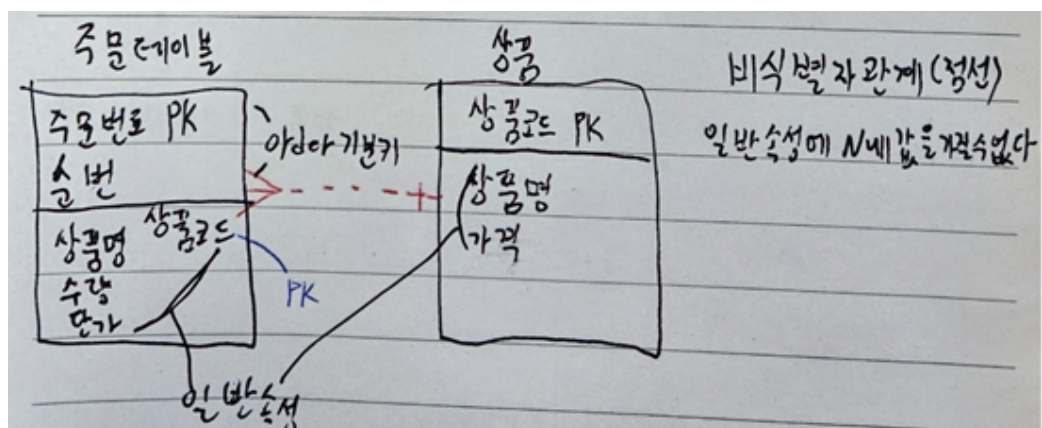 주문테이블
주문번호 PK
순번
상품명 상품코드
수량
단가
PK
일반속성
상품
상품코드 PK
상품명
가격
비식별자관계(점선)
일반속성에 N개 값을 가질수없다